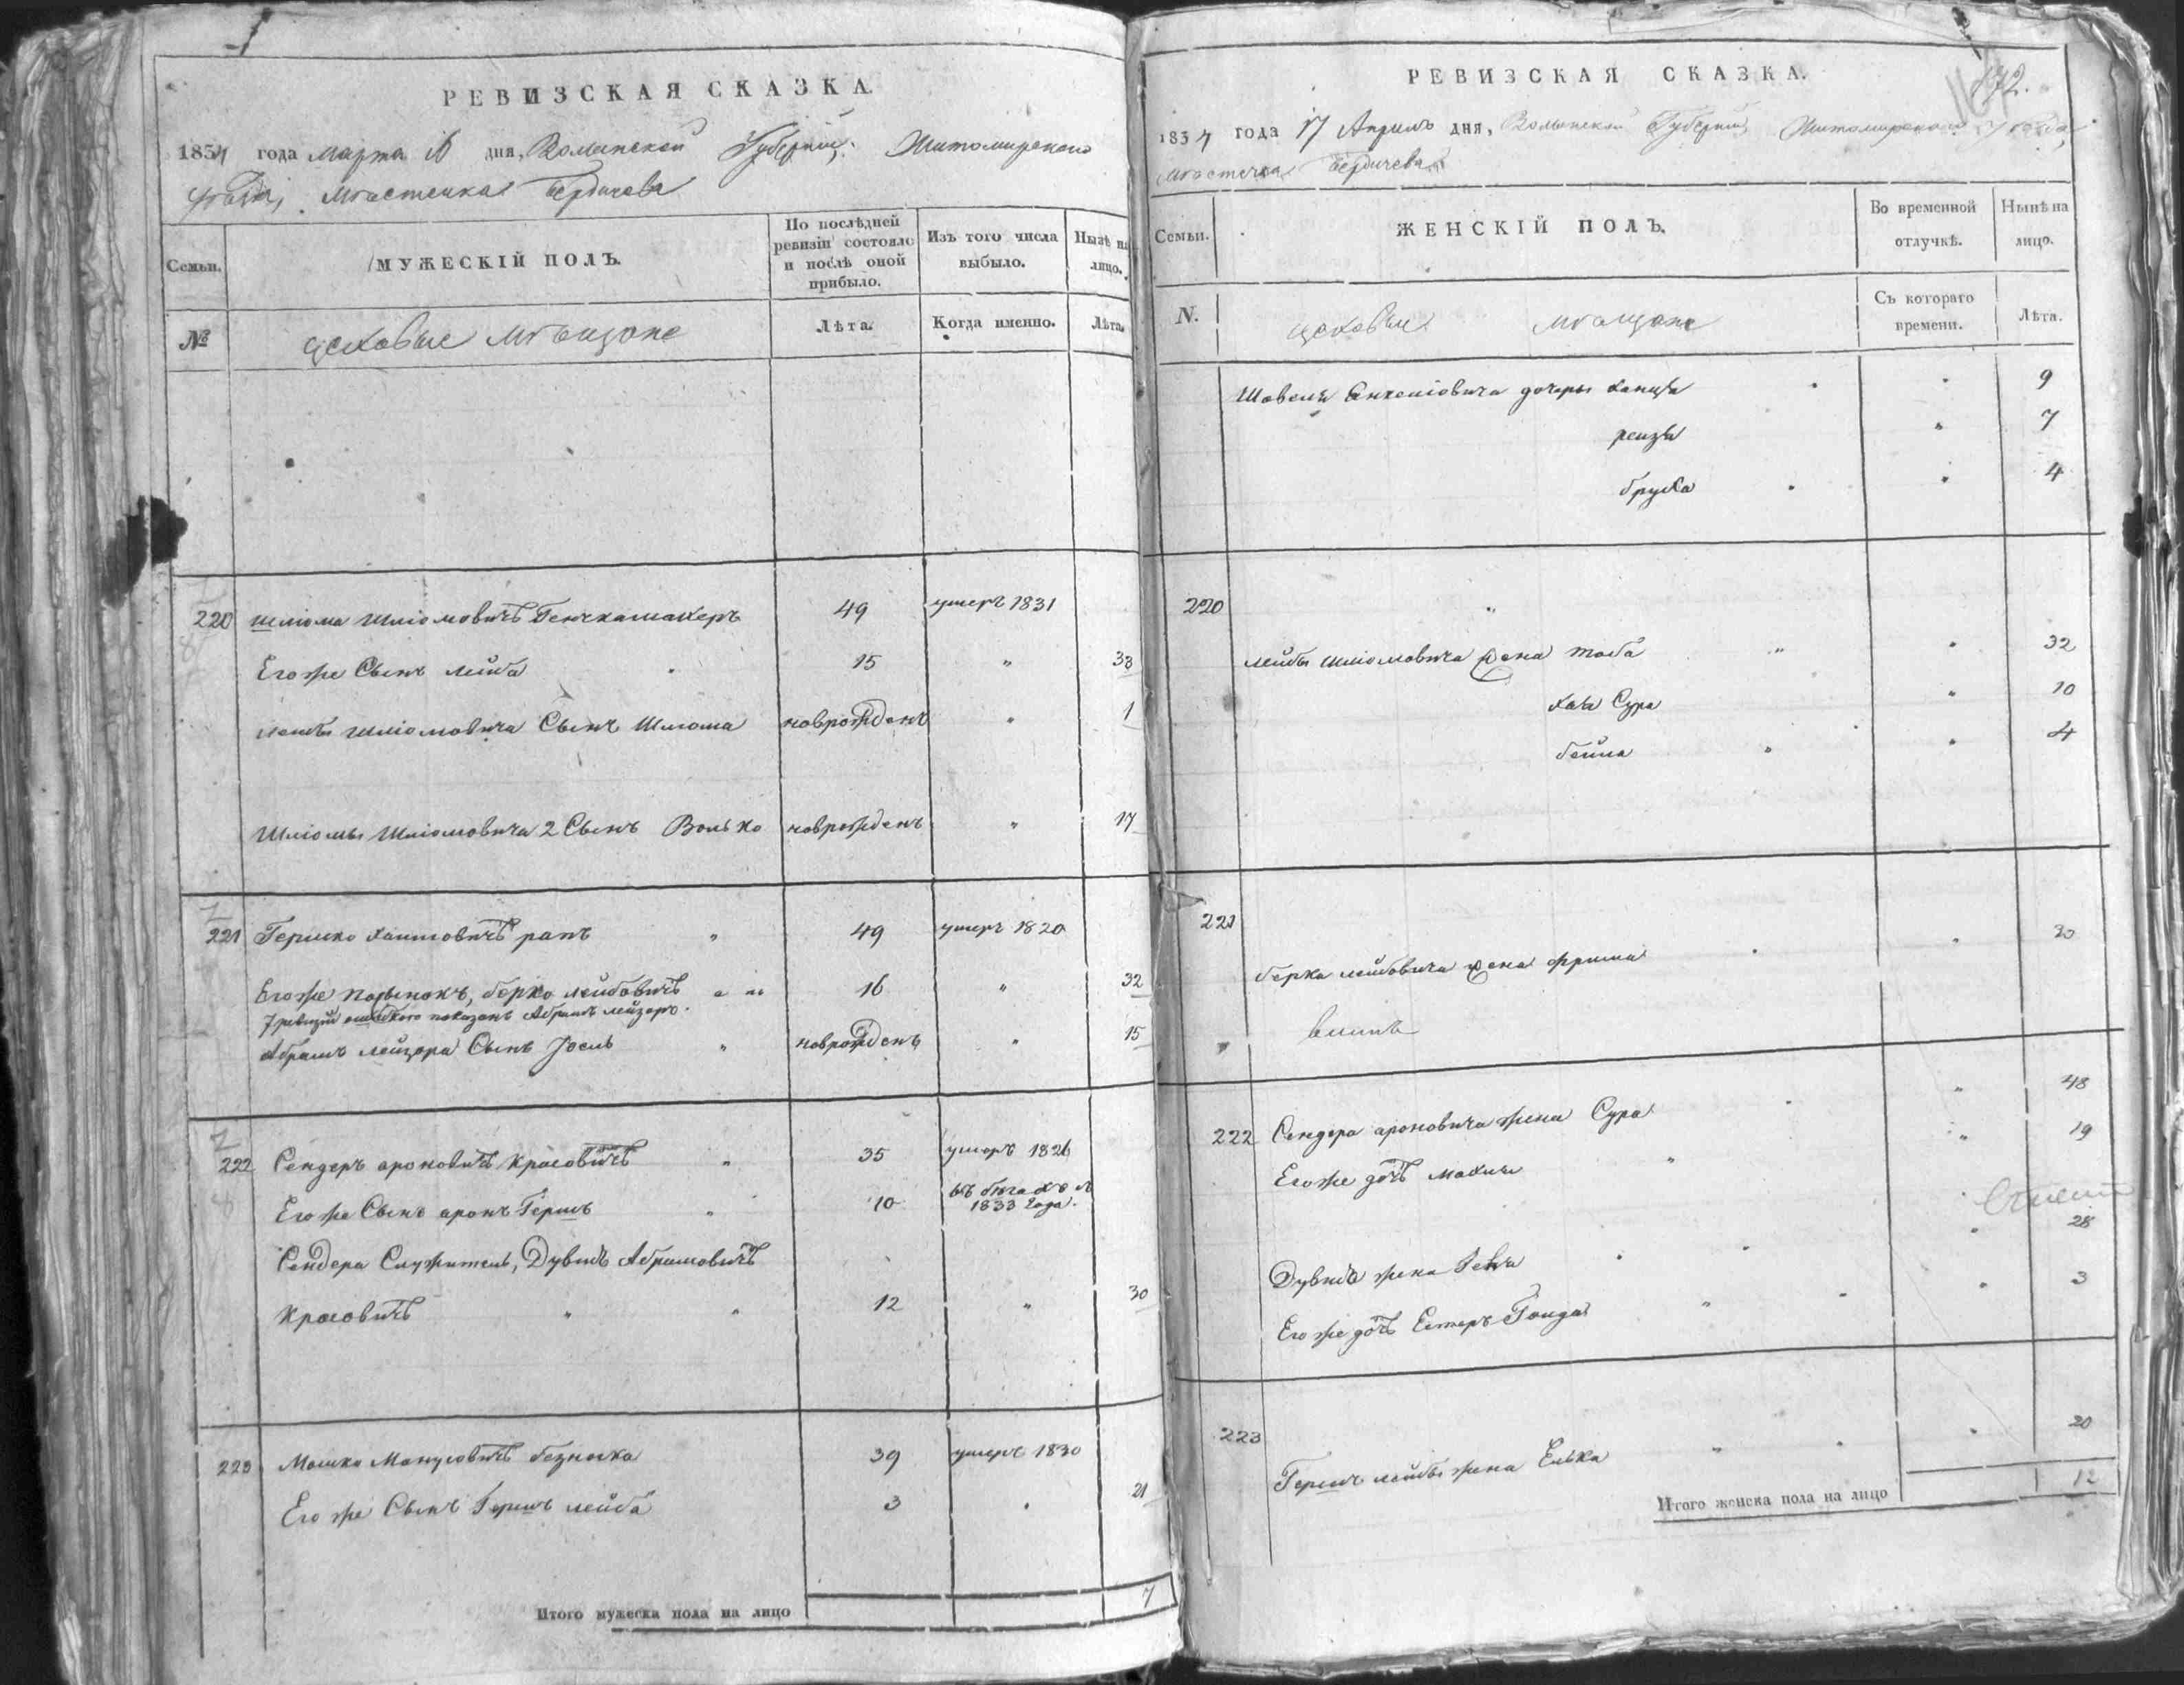 РЕВИЗСКАЯ СКАЗКА.
1834 года Марта дня, Волынской Губернии, Житомирского
уезда, местечка Бердичева
Семьи.
МУЖЕСКІЙ ПОЛЪ.
По послѣдней ревизіи состояло и послѣ оной прибыло.
Изъ того числа выбыло.
Нынѣ на лицо.
№
цеховые мещане
Лѣта.
Когда именно.
Лѣта.
220 Шліома Шліомовичъ Генчкамахеръ 49 умеръ 1831
Его же Сынъ лейба 15 " 33
лейбы Шліомовича Сынъ Шлиома новрожденъ " 1
Шліомы Шліомовича 2 Сынъ Волько новрожденъ " 17
221 Гершко хаимовичъ рапъ " 49 умеръ 1820
Его же пасынокъ, берко лейбовичъ 16 " 32
7 ревизіи ошибкою показанъ Абрамъ лейзоръ.
Абрамъ лейзора Сынъ Іосль " новрожденъ " 15
222 Сендеръ ароновичъ Красовичъ " 35 умеръ 1826
Его же Сынъ аронъ Гершъ " 10 въ бегахъ с
1833 Года.
Сендера Служитель, Дувидъ Абрамовичъ
Красовичъ " " 12 " 30
223 Мошко Манусовичъ безноска 39 умеръ 1830
Его же Сынъ Гершъ лейба 3 " 21
Итого мужеска пола на лицо 7
РЕВИЗСКАЯ СКАЗКА.
172.
1834 года 17 Апрель дня, Волынской Губернии, Житомирского уезда,
местечка Бердичева
Семьи.
ЖЕНСКІЙ ПОЛЪ.
Во временной отлучкѣ.
Нынѣ на лицо.
N.
цеховые мещане
Съ котораго времени.
Лѣта.
Шовеля дочеры ханця " 9
рейзя " 7
бруха " 4
220 "
лейбы Шліомовича жена тоба " " 32
хая Сура " 10
бейла " " 4
221
берка лейбовича жена фрима " " 30
222 Сендера ароновича жена Сура " " 48
Его же дочь малия " " 19
Дувидъ жена " " 28
Его же дочь Естеръ Гольда " " 3
223
Гершъ лейбы жена Елька " " 20
Итого женска пола на лицо 12